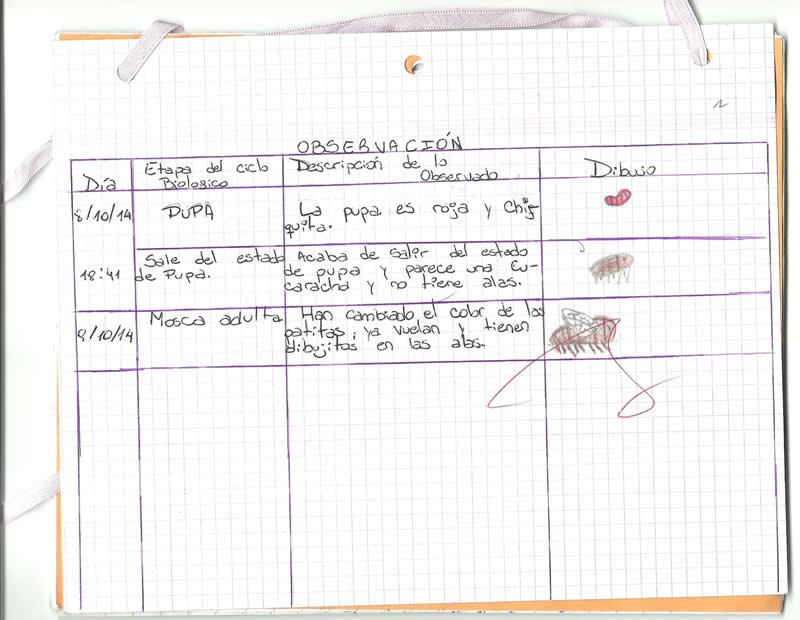 OBSERVACIÓN
Día
Etapa del ciclo
Biologico
Descripción de lo
Observado
Dibujo
8/10/14
PUPA
La pupa es roja y Chiq-
quita.
18:41
Sale del estado
de Pupa.
Acaba de Salir del estado
de pupa y parece una Cu-
caracha y no tiene alas.
8/10/14
Mosca adulta
Han cambiado el color de las
patitas, ya vuelan y tienen
dibujitos en las alas.